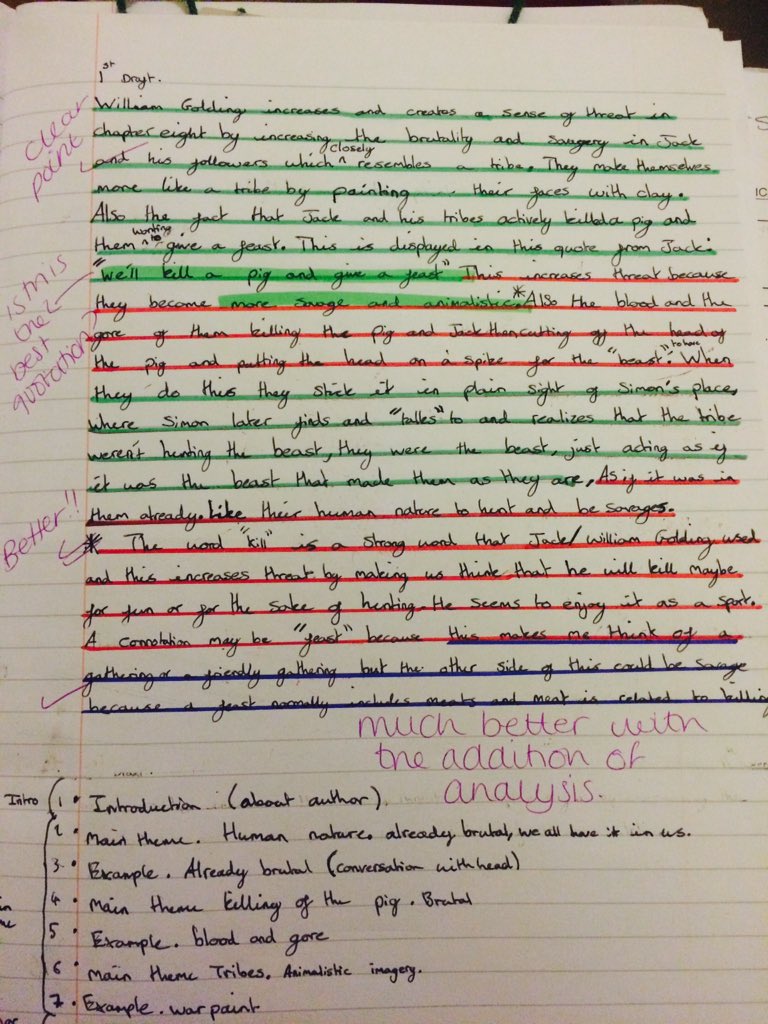 1st Draft.
William Golding increases and creates a sense of threat in
chapter eight by increasing the brutality and savagery in Jack
and his followers which closely resembles a tribe. They make themselves
more like a tribe by painting their faces with clay.
Also the fact that Jack and his tribes actively killed a pig and
them wanting to give a feast. This is displayed in this quote from Jack:
"we'll kill a pig and give a feast" This increases threat because
they become more savage and animalistic.* Also the blood and the
gore of them killing the pig and Jack then cutting off the head of
the pig and putting the head on a spike for the "beast" to have. When
they do this they stick it in plain sight of Simon's place,
where Simon later finds and "talks" to and realizes that the tribe
weren't hunting the beast, they were the beast, just acting as if
it was the beast that made them as they are, As if it was in
them already. Like their human nature to hunt and be savages.
* The word "kill" is a strong word that Jack/William Golding used
and this increases threat by making us think that he will kill maybe
for fun or for the sake of hunting. He seems to enjoy it as a sport.
A connotation may be "feast" because this makes me think of a
gathering or a friendly gathering but the other side of this could be savage
because a feast normally includes meats and meat is related to killing
clear
point
is this
the
best
quotation?
Better!!
much better with
the addition of
analysis.
Intro
1 • Introduction (about author).
2 • Main theme. Human nature. already brutal, we all have it in us.
3 • Example. Already brutal (conversation with head)
4 • Main theme killing of the pig. Brutal
5 • Example. blood and gore
6 • Main theme Tribes. Animalistic imagery.
7 • Example. war paint